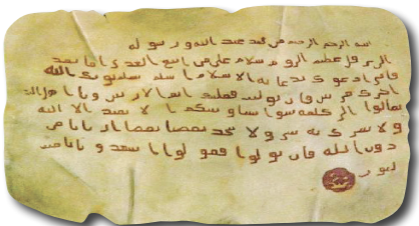 بسم الله الرحمن الرحيم من محمد عبد الله ورسوله
الى هرقل عظيم الروم سلام على من اتبع الهدى اما بعد
فانى ادعوك بدعاية الاسلام اسلم تسلم يوتك الله
اجرك مرتين فان توليت فعليك اثم الاريسين ويا اهل الكتب
تعالوا الى كلمة سوا بيننا وبينكم الا نعبد الا الله
ولا نشرك به شيا ولا يتخذ بعضنا بعضا اربابا من
دون الله فان تولوا فقولوا اشهدوا بانا مسلـ
ـمون